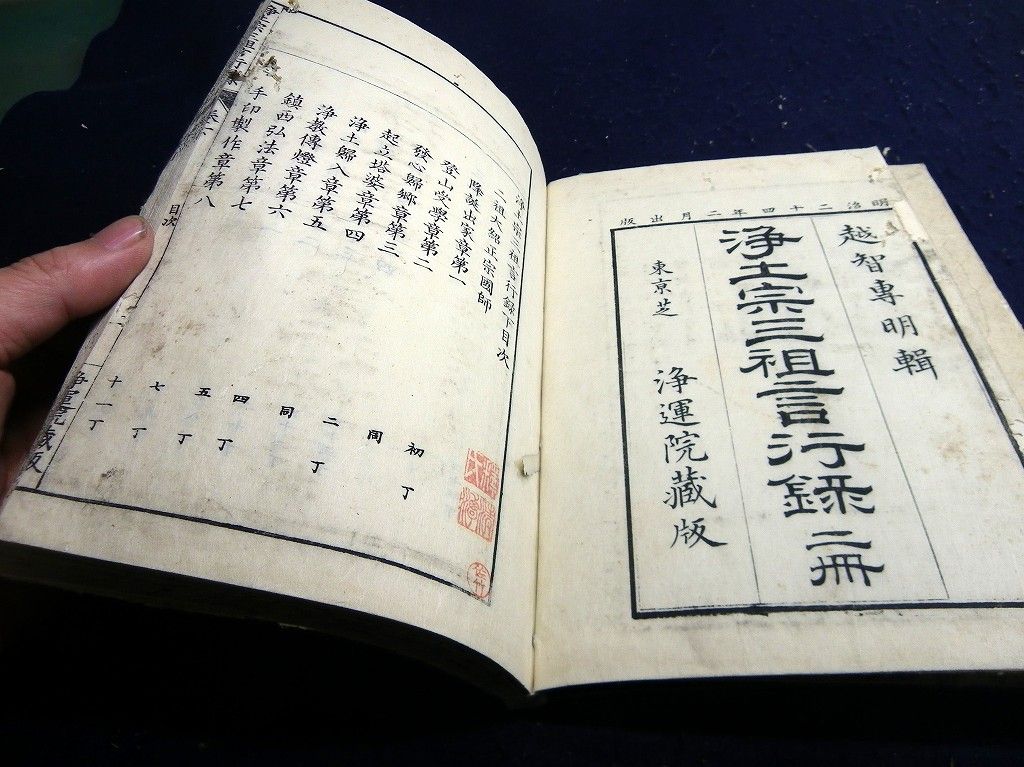 明治二十四年二月出版
越智專明輯
浄土宗三祖言行録 二冊
東京芝 浄運院藏版
浄土宗三祖言行録下目次
二祖大紹正宗國師
降誕出家章第一 初丁
登山受學章第二 二丁
發心歸郷章第三 同
起立塔婆章第四 同
浄土歸入章第五 四丁
浄教傳燈章第六 五丁
鎮西弘法章第七 七丁
手印製作章第八 十一丁
浄土宗三祖言行録 目次 浄運院藏版